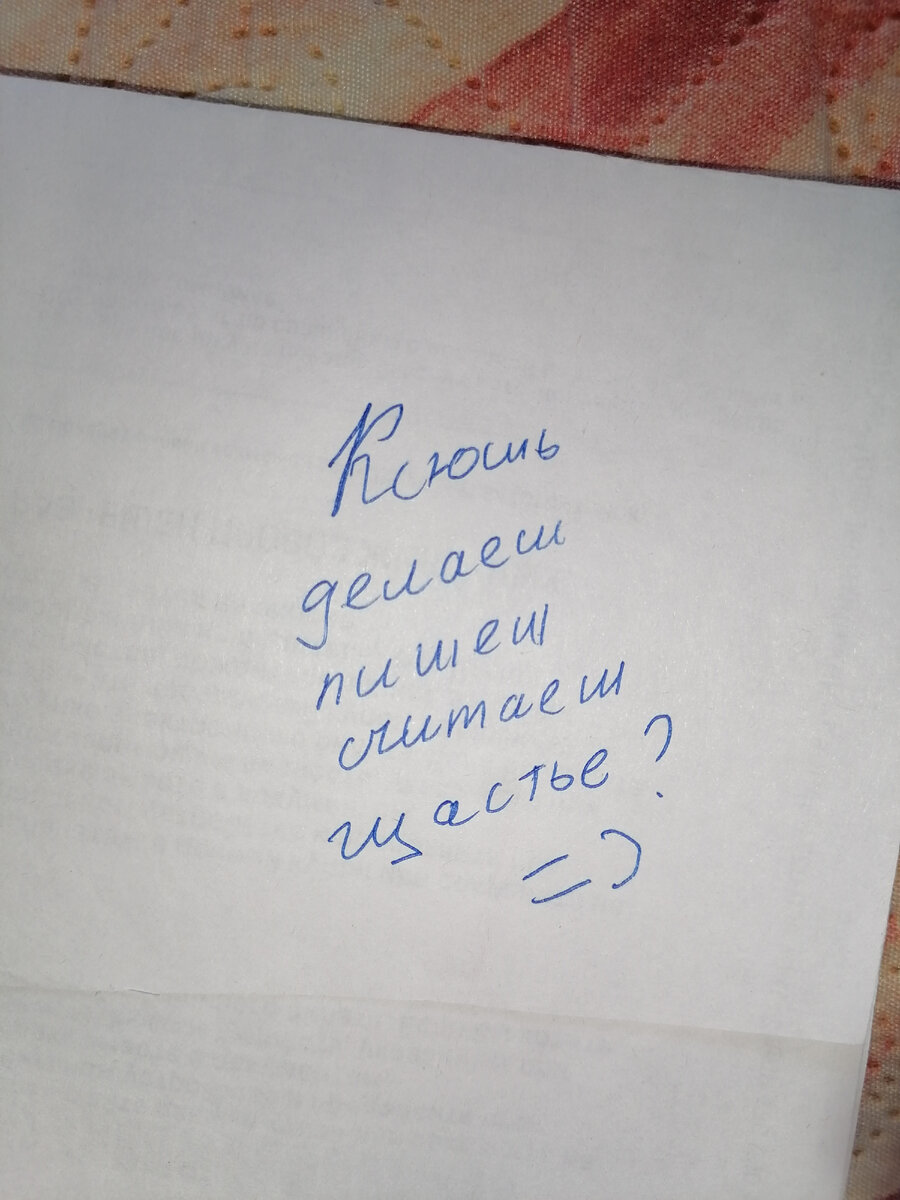 Ксюшь
делаеш
пишеш
считаеш
щастье?
=)